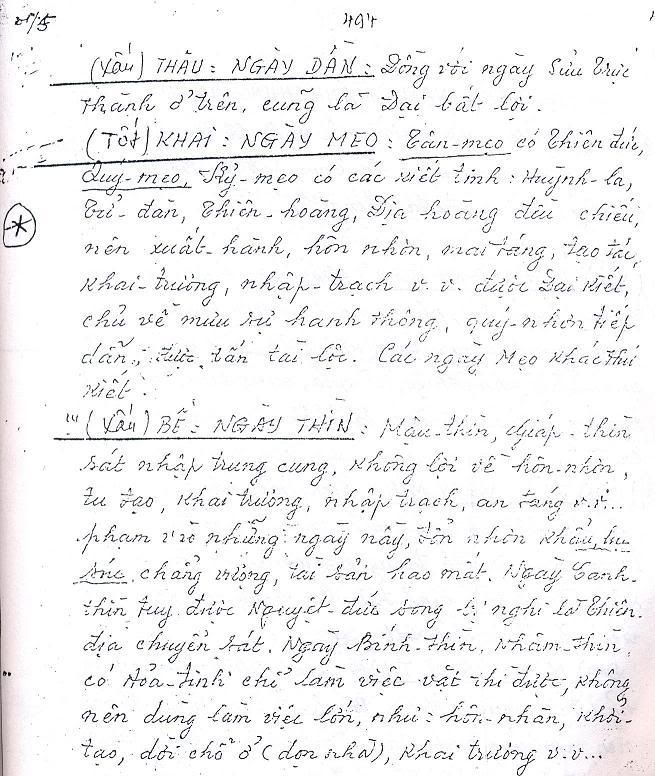 494
(Xấu) THÂU : NGÀY DẦN : Đồng với ngày Sửu Trực
thành ở trên, cũng là Đại bất lợi.
(TỐT) KHAI : NGÀY MẸO : Tân-mẹo có Thiên đức,
Quý-mẹo, Kỷ-mẹo có các kiết tinh : Huỳnh-la,
Tử-đàn, Thiên-hoàng, Địa hoàng đều chiếu,
nên xuất-hành, hôn nhơn, mai táng, tạo tác,
khai-trương, nhập-trạch v.v. được Đại kiết,
chủ về mưu sự hanh thông, quý-nhơn tiếp
dẫn, được tấn tài lộc. Các ngày Mẹo khác thứ
kiết.
(Xấu) BẾ : NGÀY THÌN : Mậu-thìn, Giáp-thìn
sát nhập trung cung, không lợi về hôn-nhơn,
tu tạo, khai trương, nhập trạch, an táng v.v...
phạm vào những ngày nầy, tổn nhơn khẩu, lục
súc chẳng vượng, tài sản hao mất. Ngày Canh-
thìn tuy được Nguyệt-đức song bị nghi là Thiên-
địa chuyển sát. Ngày Bính-thìn, Nhâm-thìn,
có Hỏa-tinh chỉ làm việc vặt thì được, không
nên dùng làm việc lớn, như : hôn-nhân, khởi-
tạo, dời chỗ ở (dọn nhà), khai trương v.v...